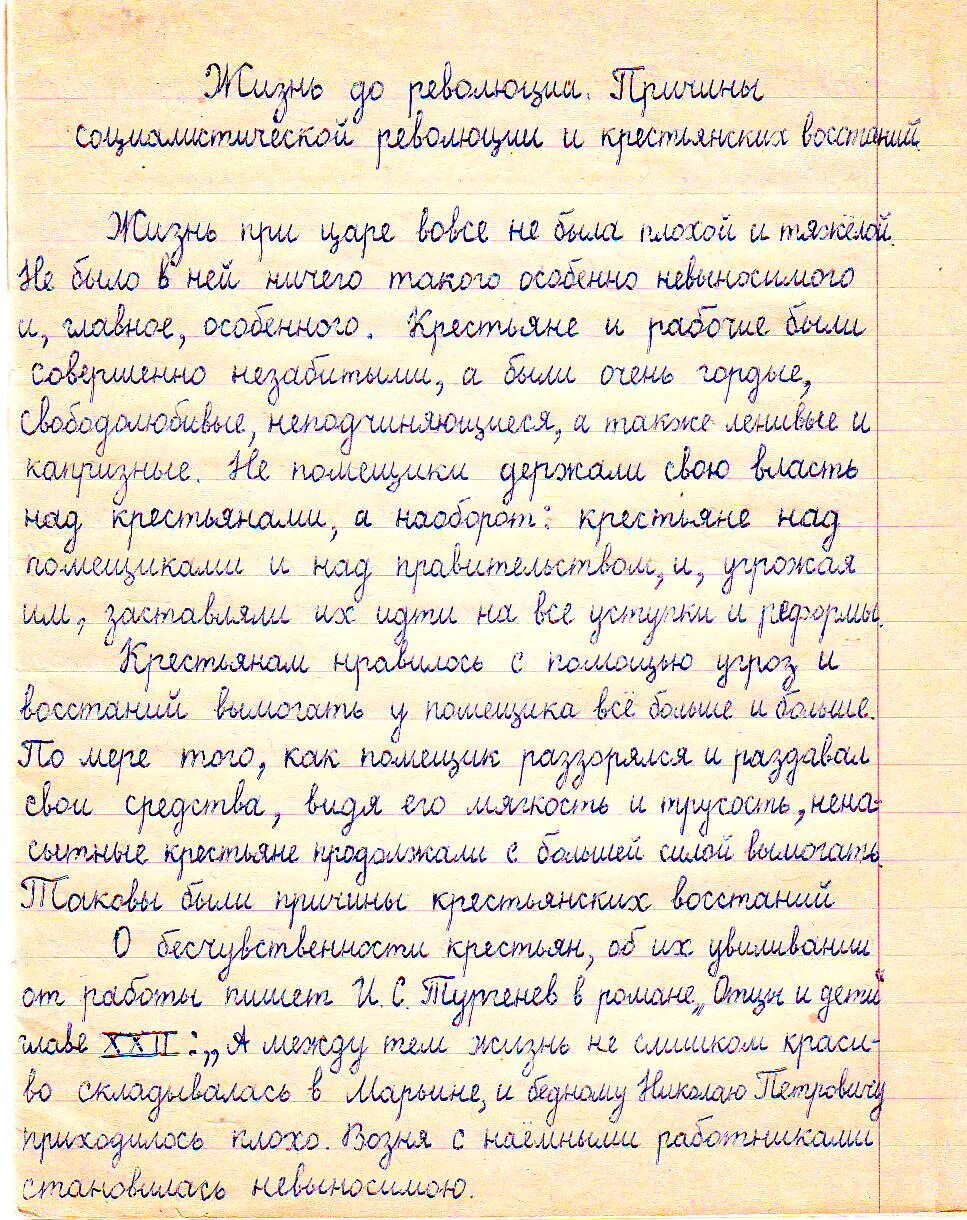 Жизнь до революции. Причины
социалистической революции и крестьянских восстаний.
Жизнь при царе вовсе не была плохой и тяжёлой.
Не было в ней ничего такого особенно невыносимого
и, главное, особенного. Крестьяне и рабочие были
совершенно незабитыми, а были очень гордые,
свободолюбивые, неподчиняющиеся, а также ленивые и
капризные. Не помещики держали свою власть
над крестьянами, а наоборот: крестьяне над
помещиками и над правительством, и, угрожая
им, заставляли их идти на все уступки и реформы.
Крестьянам нравилось с помощью угроз и
восстаний вымогать у помещика всё больше и больше.
По мере того, как помещик раззорялся и раздавал
свои средства, видя его мягкость и трусость, нена-
сытные крестьяне продолжали с большей силой вымогать.
Таковы были причины крестьянских восстаний
О бесчувственности крестьян, об их увиливании
от работы пишет И. С. Тургенев в романе „Отцы и дети"
главе XXII: „А между тем жизнь не слишком краси-
во складывалась в Марьине, и бедному Николаю Петровичу
приходилось плохо. Возня с наёмными работниками
становилась невыносимою.